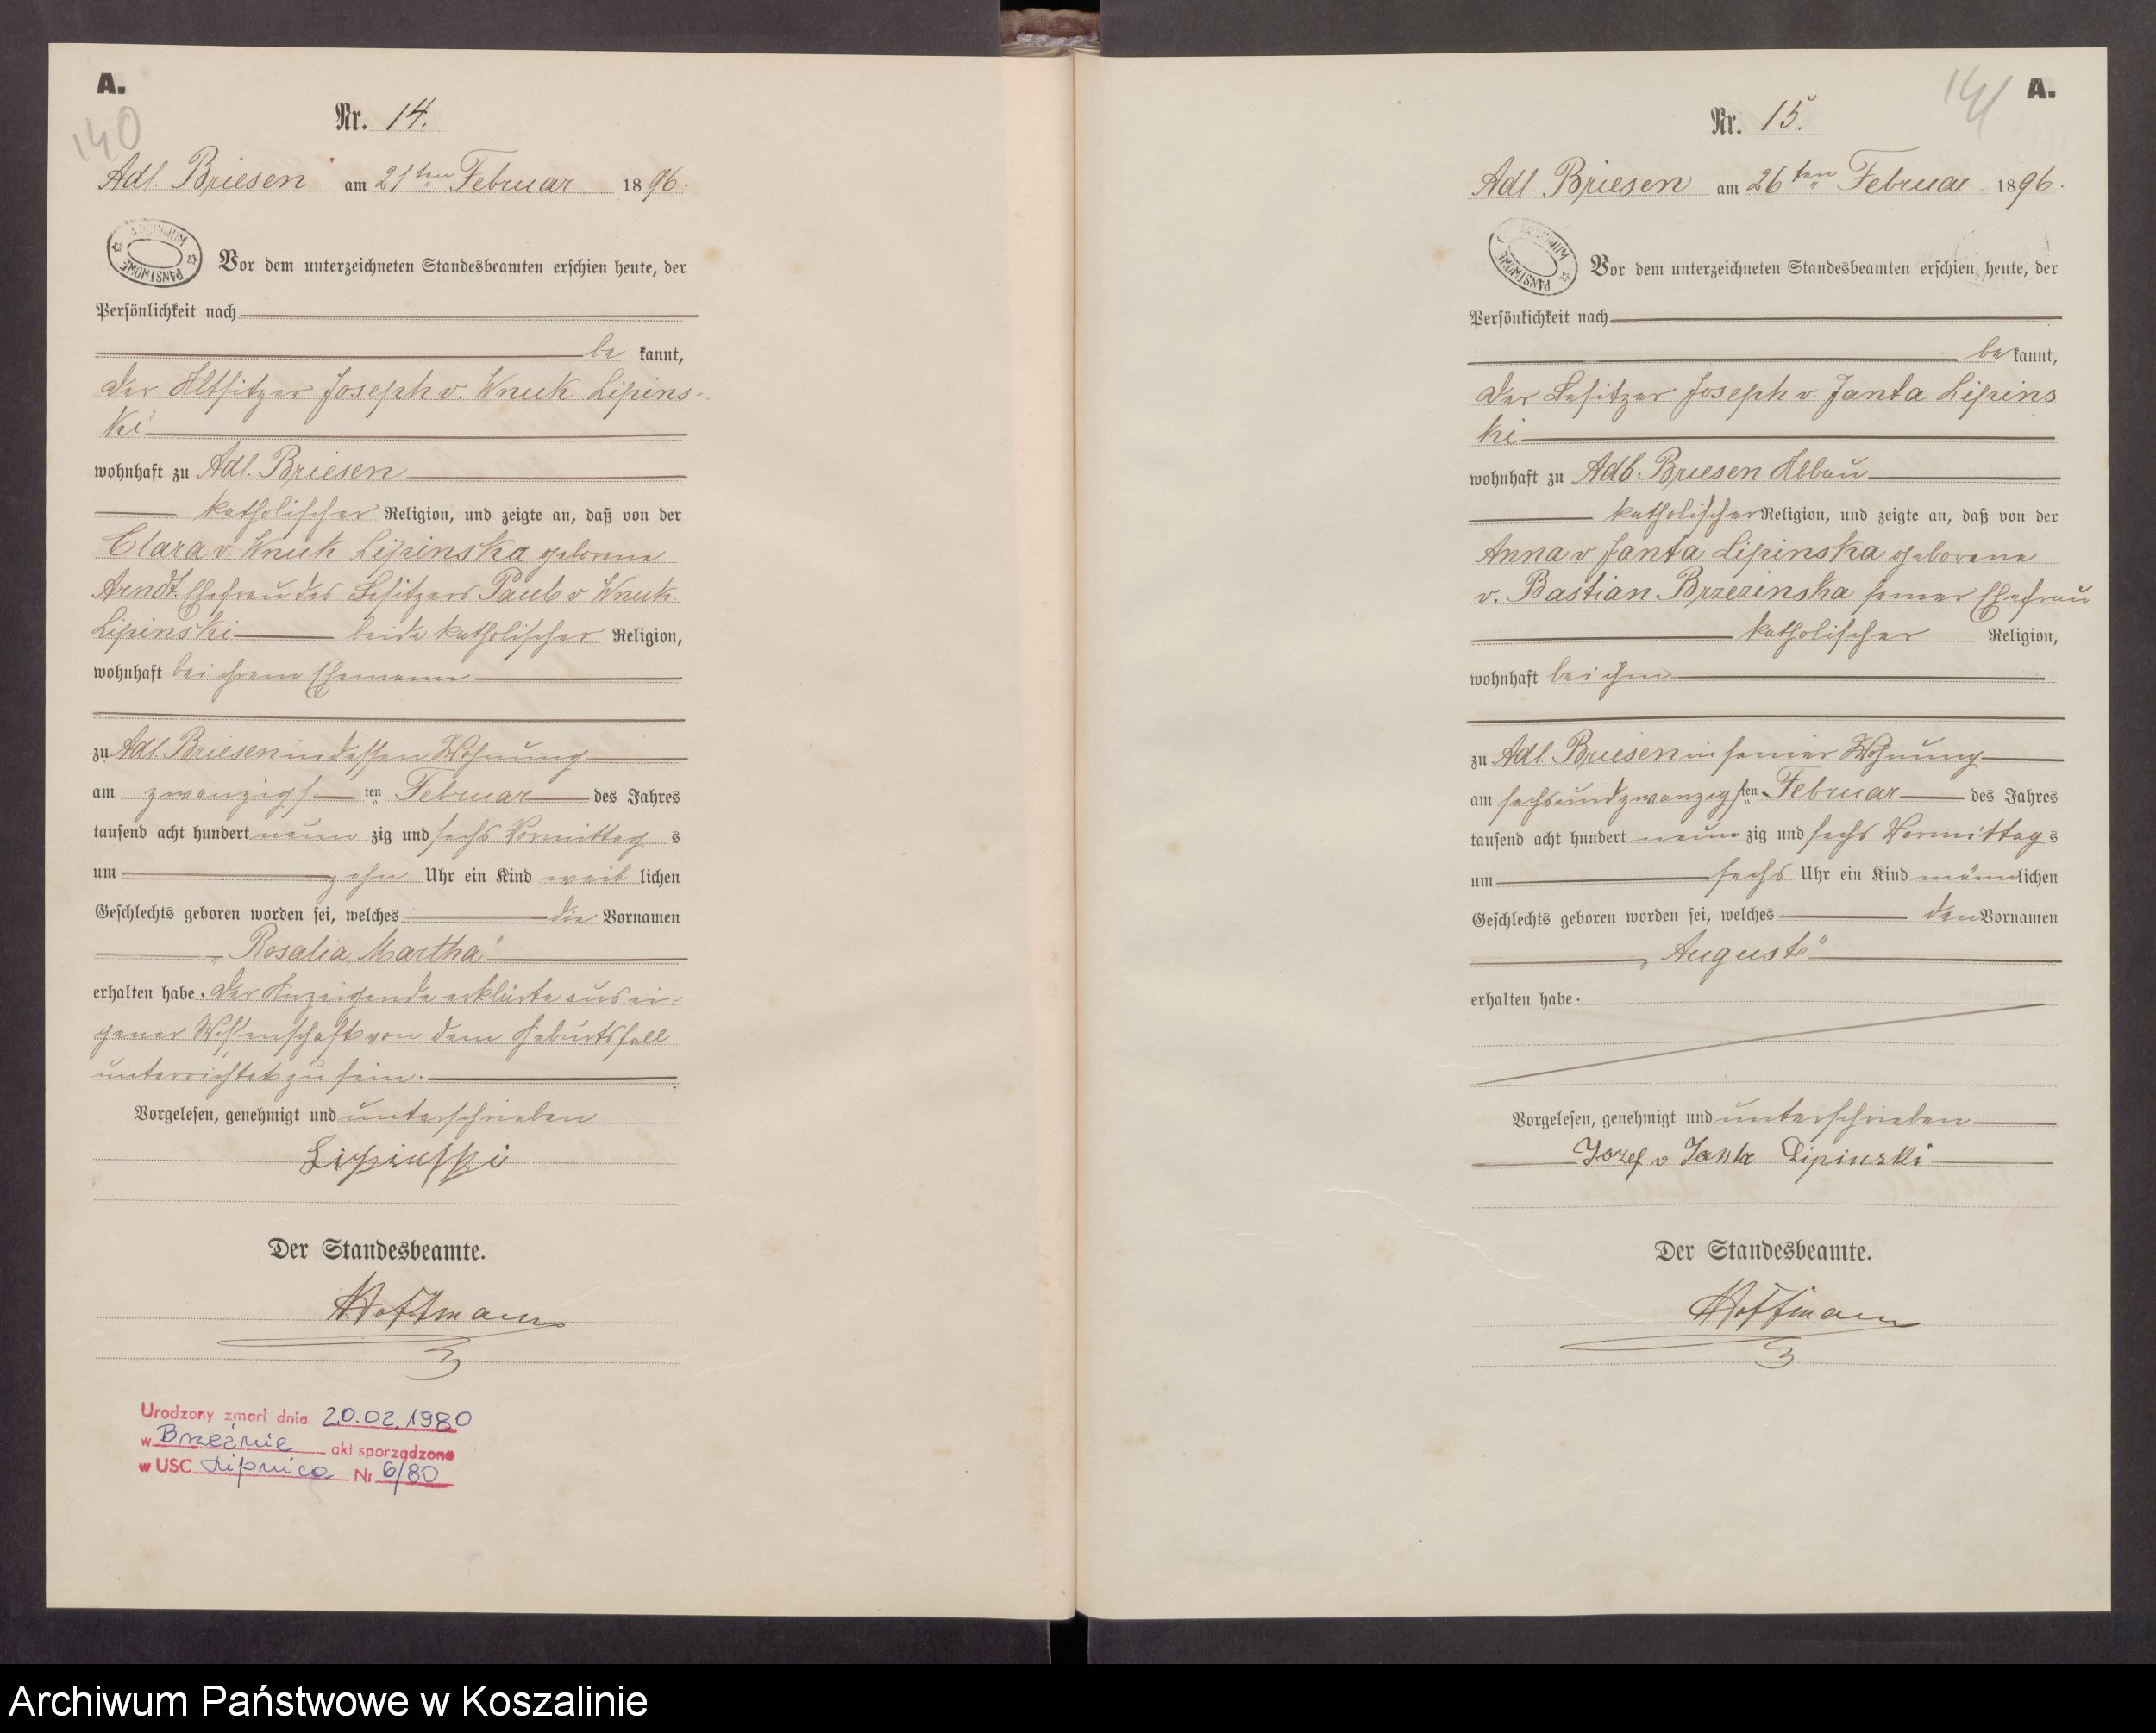 A.
140
Nr. 14.
Adl. Briesen am 21ten Februar 1896.
ARCHIWUM PAŃSTWOWE
Vor dem unterzeichneten Standesbeamten erschien heute, der
Persönlichkeit nach
be kannt,
der Altsitzer Joseph v. Wnuk Lipins-
ki
wohnhaft zu Adl. Briesen
katholischer Religion, und zeigte an, daß von der
Clara v. Wnuk Lipinska geborene
Arndt Ehefrau des Besitzers Paul v Wnuk
Lipinski beide katholischer Religion,
wohnhaft bei ihrem Ehemann
zu Adl. Briesen in dessen Wohnung
am zwanzigsten Februar des Jahres
tausend acht hundert neun zig und sechs Vormittag s
um zehn Uhr ein Kind weib lichen
Geschlechts geboren worden sei, welches die Vornamen
„Rosalia, Martha"
erhalten habe. Der Anzeigende erklärte aus ei-
gener Wissenschaft von dem Geburtsfall
unterrichtet zu sein.
Vorgelesen, genehmigt und unterschrieben
Lipinski
Der Standesbeamte.
Hoffmann
Urodzony zmarł dnia 20.02.1980
w Brzeźnie akt sporządzono
w USC Lipnica Nr 6/80
141
A.
Nr. 15.
Adl. Briesen am 26ten Februar 1896.
ARCHIWUM PAŃSTWOWE
Vor dem unterzeichneten Standesbeamten erschien heute, der
Persönlichkeit nach
be kannt,
der Besitzer Joseph v. Janta Lipins
ki
wohnhaft zu Adl. Briesen Abbau
katholischer Religion, und zeigte an, daß von der
Anna v Janta Lipinska geborene
v. Bastian-Brzezinska seiner Ehefrau
katholischer Religion,
wohnhaft bei ihm
zu Adl. Briesen in seiner Wohnung
am sechsundzwanzigsten Februar des Jahres
tausend acht hundert neun zig und sechs Vormittag s
um sechs Uhr ein Kind männlichen
Geschlechts geboren worden sei, welches den Vornamen
„August"
erhalten habe.
Vorgelesen, genehmigt und unterschrieben
Jozef v Janta Lipinski
Der Standesbeamte.
Hoffmann
Archiwum Państwowe w Koszalinie